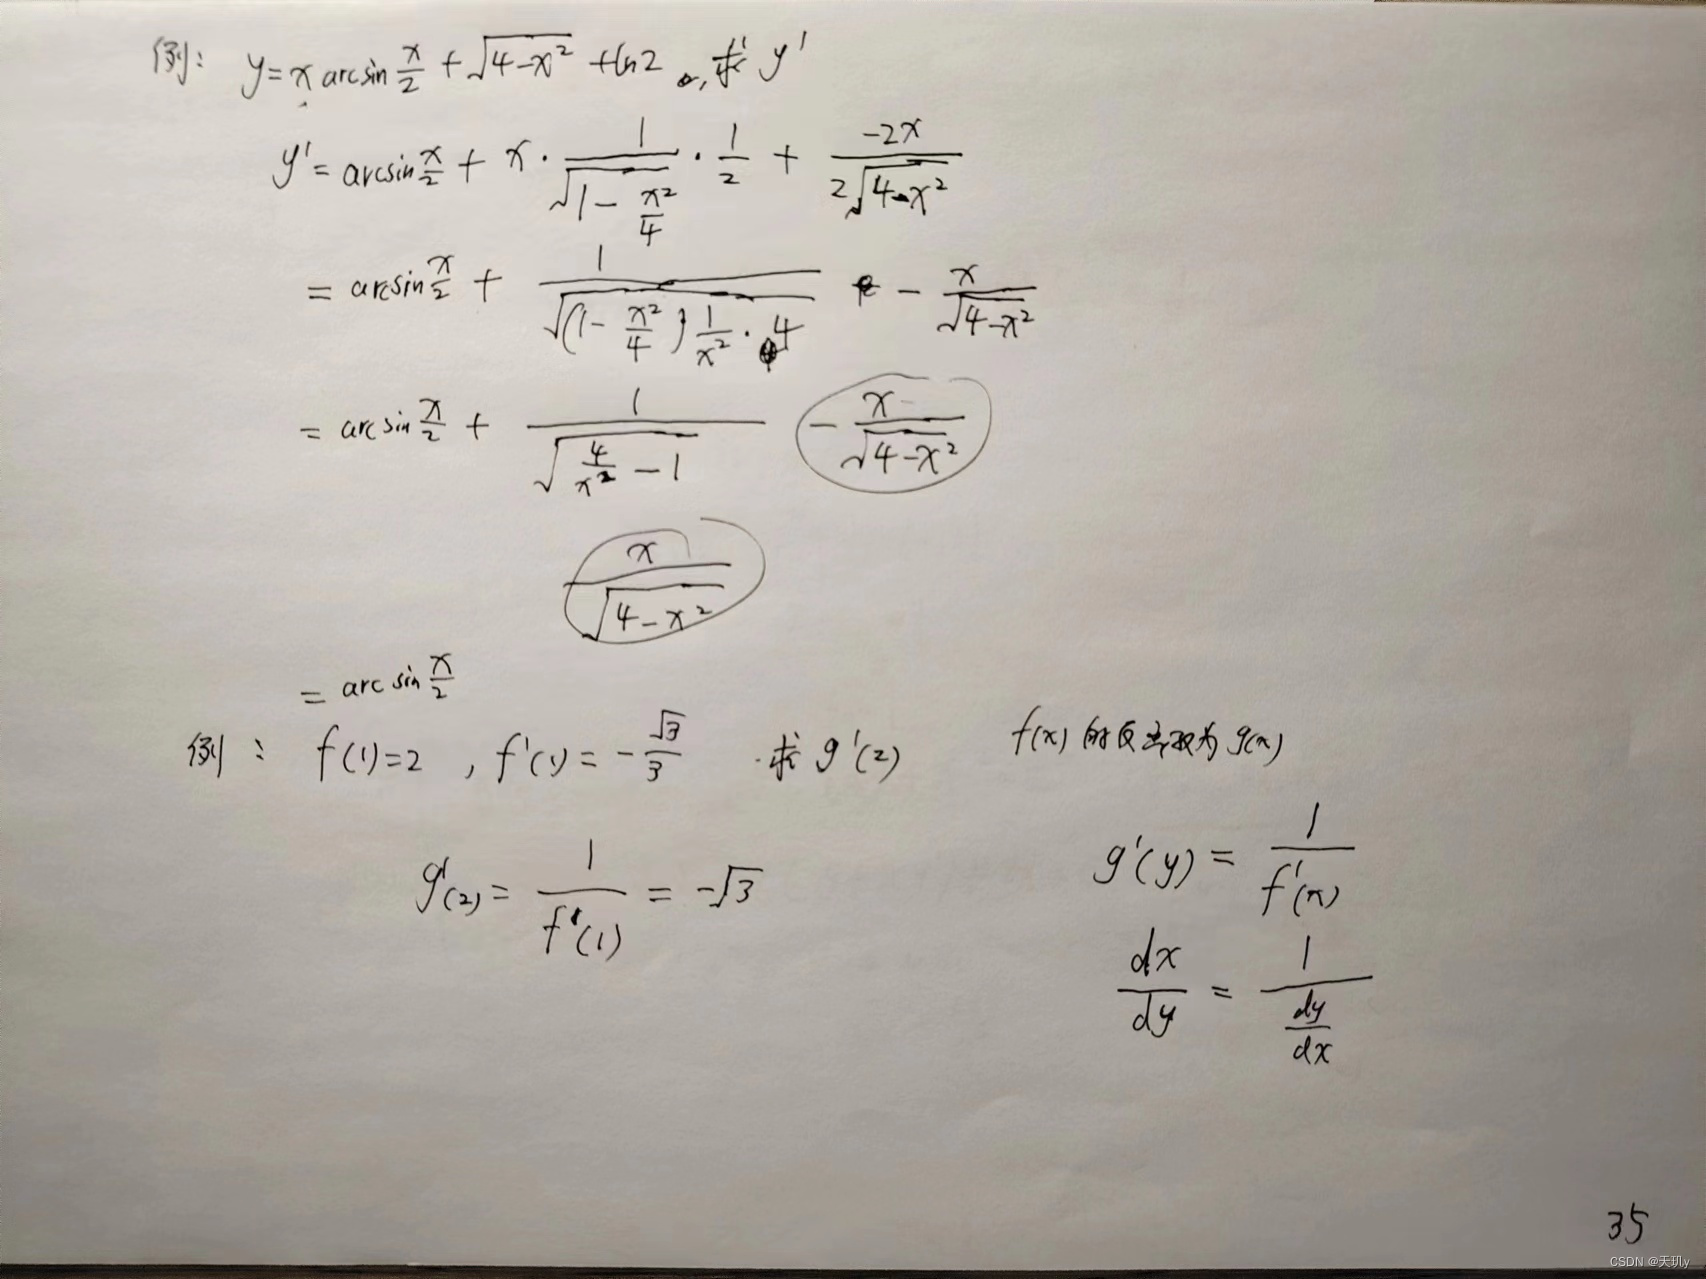 例: y = x arcsin x/2 + √(4-x²) + ln2 , 求 y'
y' = arcsin x/2 + x · 1/√(1 - x²/4) · 1/2 + -2x/(2√(4-x²))
= arcsin x/2 + 1/√((1 - x²/4) 1/x² · 4) - x/√(4-x²)
= arcsin x/2 + 1/√(4/x² - 1) - x/√(4-x²)
x/√(4-x²)
= arcsin x/2
例: f(1)=2 , f'(1) = -√3/3 . 求 g'(2) f(x) 的反函数为 g(x)
g'(2) = 1/f'(1) = -√3
g'(y) = 1/f'(x)
dx/dy = 1/(dy/dx)
35
CSDN @天玑y